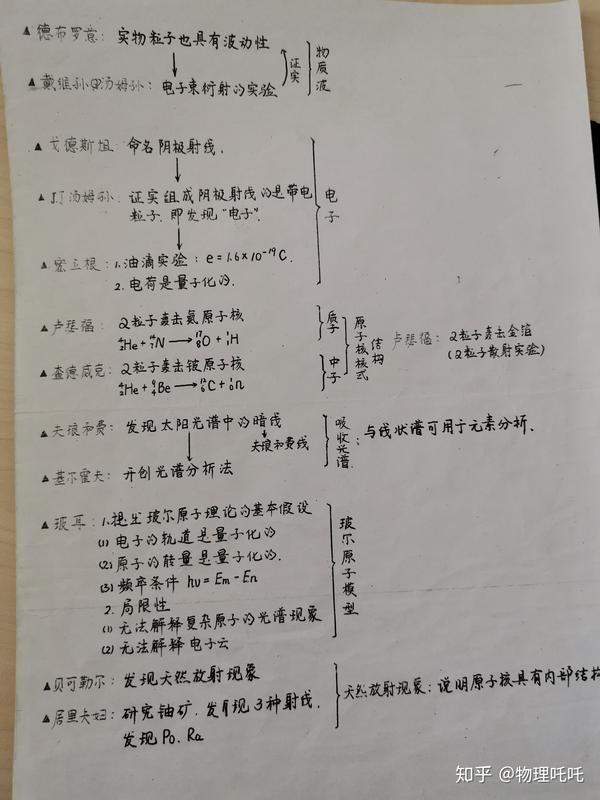 ▲德布罗意: 实物粒子也具有波动性
证实
物质波
▲戴维孙@汤姆孙: 电子束衍射的实验
▲戈德斯坦: 命名阴极射线.
▲JJ汤姆孙: 证实组成阴极射线的是带电
粒子. 即发现"电子".
电子
▲密立根: 1.油滴实验: e=1.6×10⁻¹⁹C.
2. 电荷是量子化的.
▲卢瑟福: α粒子轰击氮原子核
⁴₂He+¹⁴₇N→¹⁷₈O+¹₁H
质子
▲查德威克: α粒子轰击铍原子核
⁴₂He+⁹₄Be→¹²₆C+¹₀n
中子
原子核核式结构
卢瑟福: α粒子轰击金箔
(α粒子散射实验)
▲夫琅和费: 发现太阳光谱中的暗线
夫琅和费线
▲基尔霍夫: 开创光谱分析法
吸收光谱: 与线状谱可用于元素分析.
▲玻耳: 1.提出玻尔原子理论的基本假设
(1) 电子的轨道是量子化的
(2) 原子的能量是量子化的.
(3) 频率条件 hν=Em-En
2. 局限性
(1) 无法解释复杂原子的光谱现象
(2) 无法解释电子云
玻尔原子模型
▲贝可勒尔: 发现天然放射现象
▲居里夫妇: 研究铀矿. 发现3种射线.
发现Po. Ra
天然放射现象: 说明原子核具有内部结构
知乎 @物理吒吒